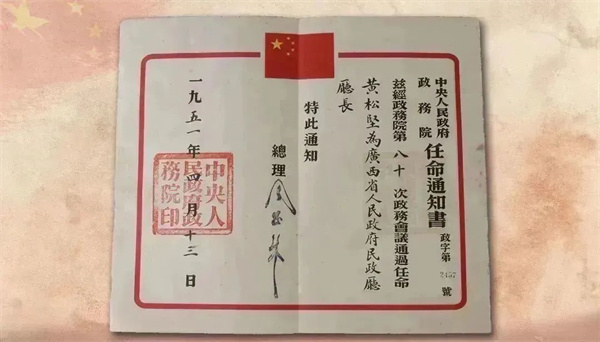 中央人民政府
政務院
任命通知書
政字第 號
茲經政務院第八十次政務會議通過任命
黃松堅為廣西省人民政府民政廳
廳長
特此通知
總理 周恩來
一九五一年四月十三日
中央人
民政府政
務院印